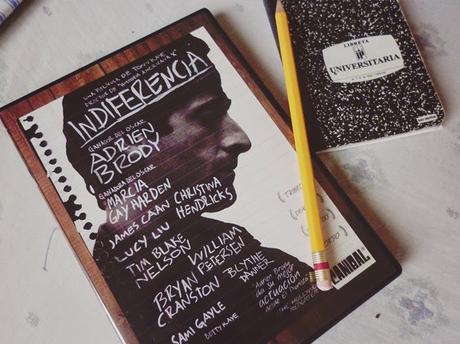 UNA PELICULA DE TONY KAYE
DIRECTOR DE "AMERICA X"
INDIFERENCIA
GANADOR DEL OSCAR
ADRIEN
BRODY
GANADORA DEL OSCAR
MARCIA
GAY HARDEN
JAMES CAAN CHRISTINA
HENDRICKS
LUCY LIU
TIM BLAKE
NELSON
WILLIAM
PETERSEN
BRYAN
CRANSTON
BLYTHE
DANNER
SAMI GAYLE
BETTY KAYE
"Adrien Brody
da su mejor
actuación
desde el
CANIBAL
LIBRETA
UNIVERSITARIA